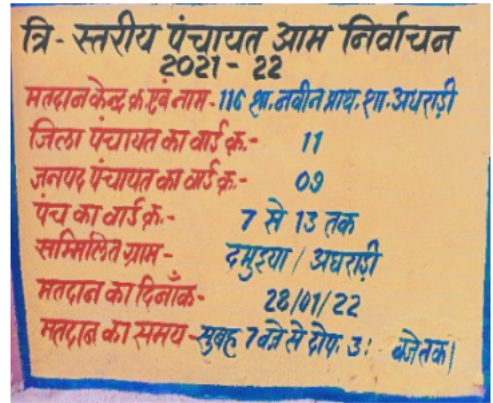 त्रि-स्तरीय पंचायत आम निर्वाचन
2021-22
मतदान केन्द्र क्र. एवं नाम- 116 शा. नवीन प्राथ. शा. अधराड़ी
जिला पंचायत का वार्ड क्र.- 11
जनपद पंचायत का वार्ड क्र.- 09
पंच का वार्ड क्र.- 7 से 13 तक
सम्मिलित ग्राम- दमुइया / अधराड़ी
मतदान का दिनाँक- 28/01/22
मतदान का समय- सुबह 7 बजे से दोप. 3: बजे तक।